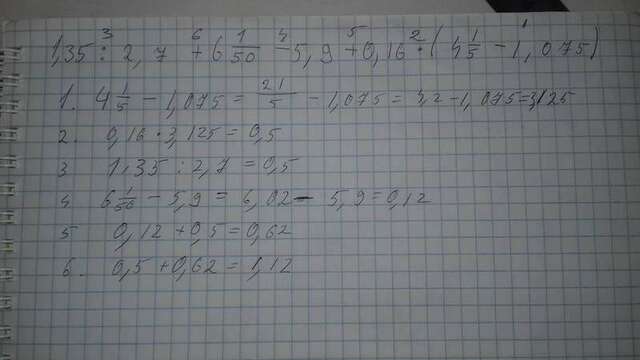 3 6 4 5 2 1
1,35 : 2,7 + 6 1/50 - 5,9 + 0,16 · (4 1/5 - 1,075)
1. 4 1/5 - 1,075 = 21/5 - 1,075 = 4,2 - 1,075 = 3,125
2. 0,16 · 3,125 = 0,5
3 1,35 : 2,7 = 0,5
4 6 1/50 - 5,9 = 6,02 - 5,9 = 0,12
5 0,12 + 0,5 = 0,62
6. 0,5 + 0,62 = 1,12